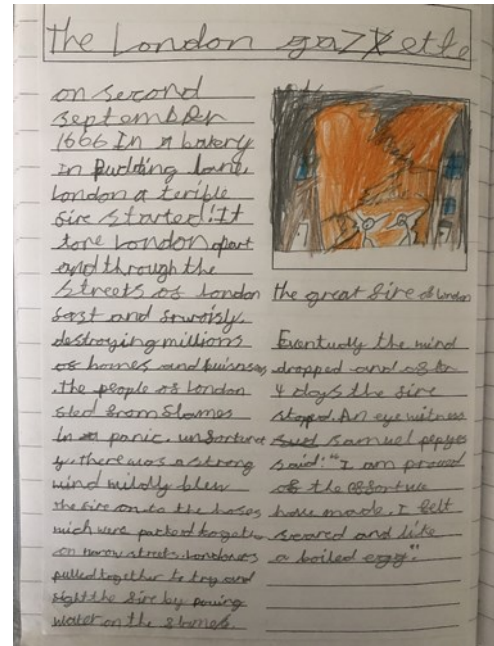 The London gazzette
on second
september
1666 In a bakery
in Pudding lane,
London a terible
fire started! It
tore London apart
and through the
streets of London
fast and
destroying millions
of homes and buisnses
. the people of London
fled from flames
in panic. unfortunat
y, there was a strong
wind wildly blew
the fire on to the hoses
wich were packed togeth
on narrow streets. Londoners
pulled together to try and
fight the fire by pouing
water on the flames.
the great fire of london
Eventually the wind
dropped and after
4 days the fire
stoped. An eye witness
samuel pepyes
said: "I am proud
of the effort we
have made. I felt
scared and like
a boiled egg".